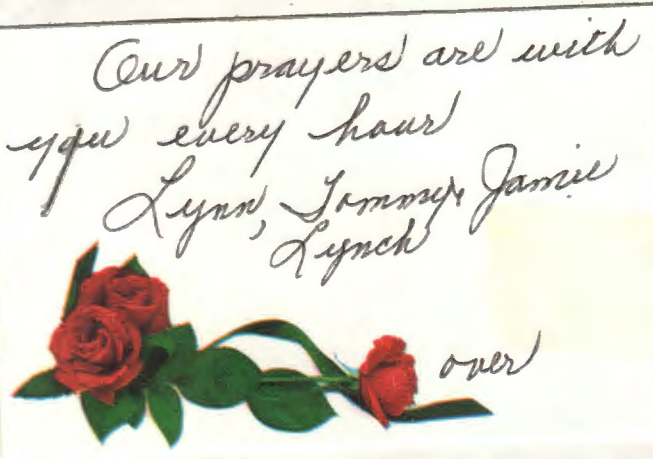 Our prayers are with
you every hour
Lynn, Tommy & Jamie
Lynch
over